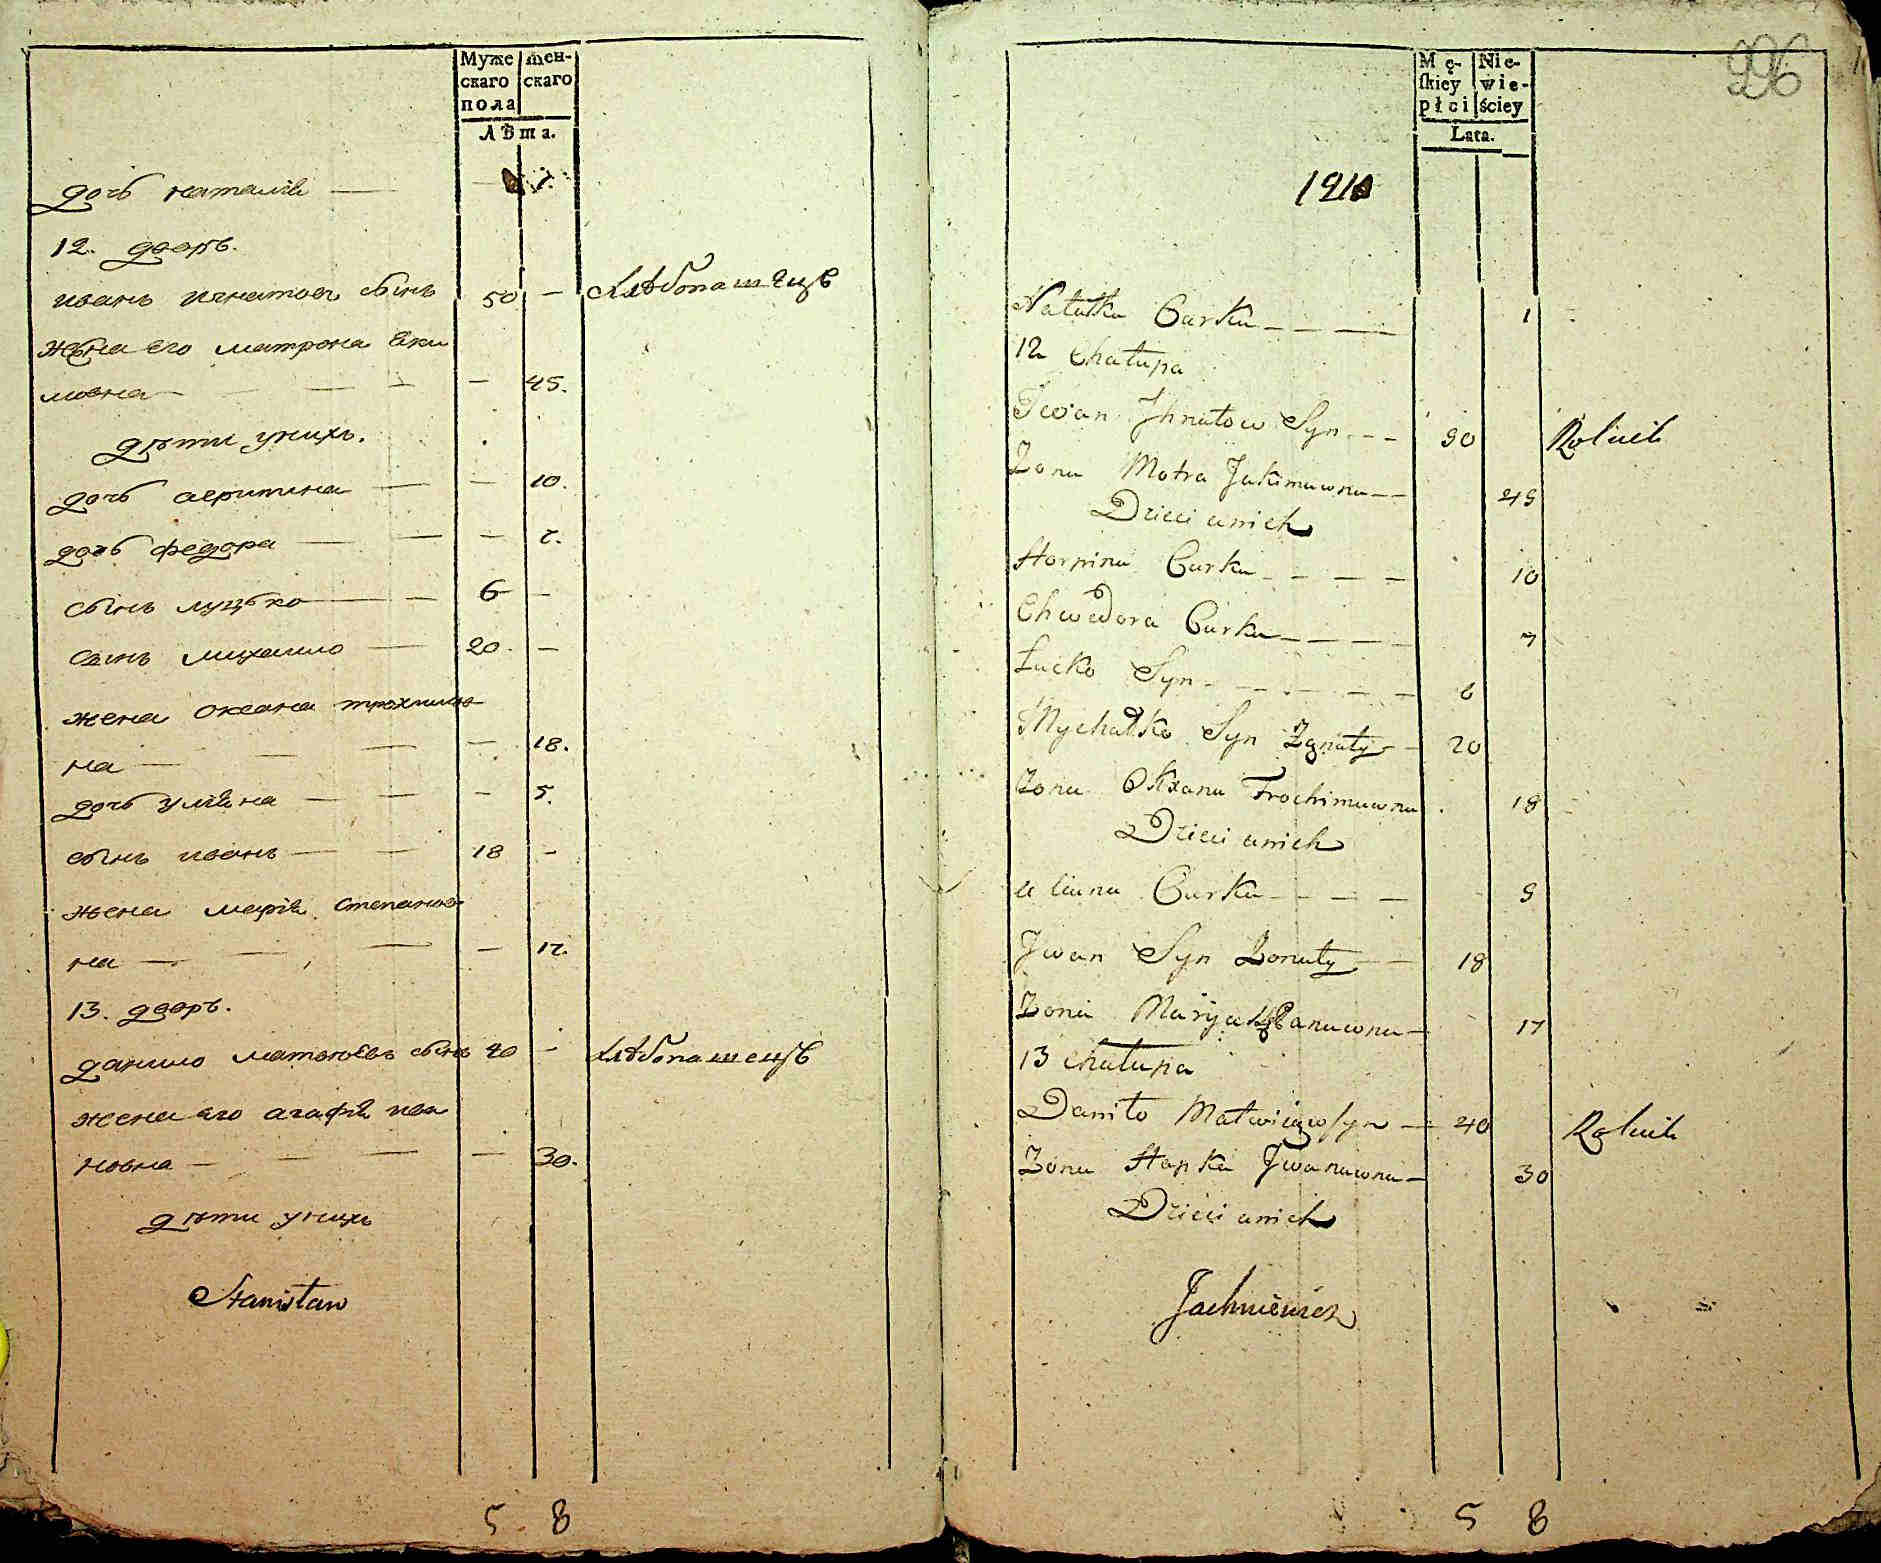 Муже
скаго
пола
жен-
скаго
Лѣта.
дочь наталiя — — 1.
12. дворъ.
иванъ игнатовъ сынъ 50 — хлѣбопашецъ
жена его матрона яки
мовна — — — — 45.
дѣти унихъ.
дочь агрипина — — 10.
дочь федора — — — 7.
сынъ луцько — — 6 —
сынъ михайло — 20. —
жена оксана трохимов
на — — — — 18.
дочь улiяна — — — 5.
сынъ иванъ — — 18 —
жена марiя степанов
на — — — — 17.
13. дворъ.
данило матвѣевъ сынъ 40 — хлѣбопашецъ
жена его агафiя ива
новна — — — — 30.
дѣти унихъ
Stanisław
5 8
296
Mę-
skiey
płci
Nie-
wie-
ściey
Lata.
Natałka Curka — — — 1
12 Chałupa
Jwan Jhnatow Syn — — 50 Rolnik
Żona Motra Jakimawna — — 45
Dzieci unich
Horpina Curka — — — — 10
Chwedora Curka — — — 7
Łucko Syn — — — — — 6
Mychałko Syn Żonaty — — 20
Żona Oksana Trochimawna 18
Dzieci unich
Uliana Curka — — — — 5
Jwan Syn Żonaty — — 18
Żona Maryja Stepanawna — 17
13 Chałupa
Daniło Matwiejow Syn — 40 Rolnik
Żona Hapka Jwanawna — 30
Dzieci unich
Jachniewicz
5 8